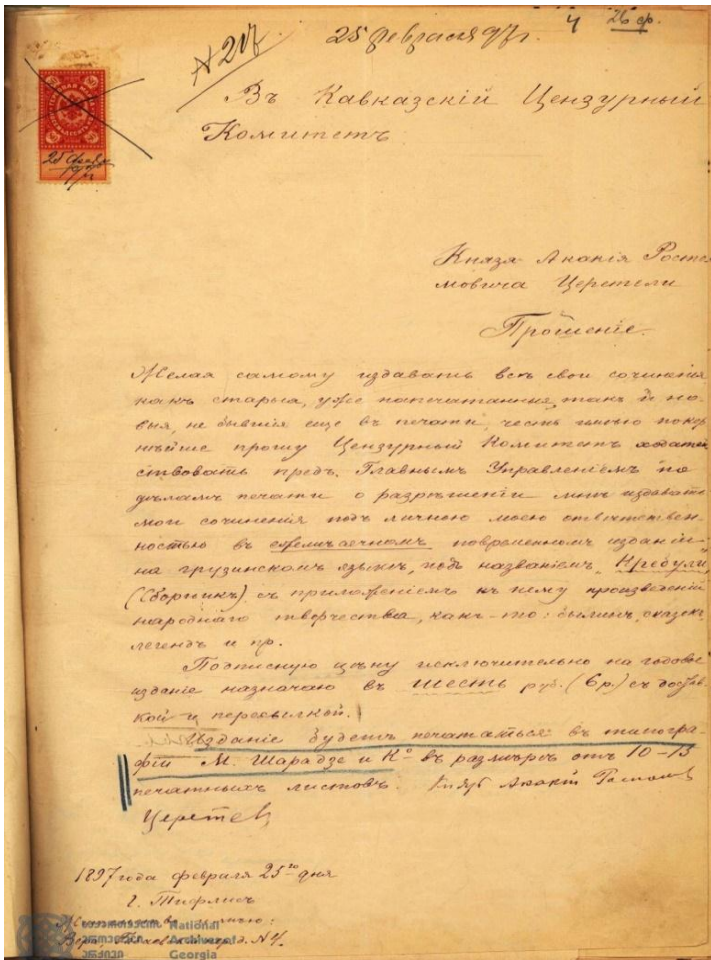 4 26 ф.
N 217
25 февраля 97 г.
Въ Кавказскій Цензурный
Комитетъ
25 февр
97 г.
Князя Акакія Росто
мовича Церетели
Прошеніе.
Желая самому издавать всѣ свои сочиненія,
какъ старыя, уже напечатанныя, такъ и но-
выя, не бывшія еще въ печати, честь имѣю покор
нѣйше прошу Цензурный Комитетъ ходатай
ствовать предъ Главнымъ Управленіемъ по
дѣламъ печати о разрѣшеніи мнѣ издавать
мои сочиненія подъ личною моею отвѣтствен-
ностью въ ежемѣсячномъ повременномъ изданіи
на грузинскомъ языкѣ, подъ названіемъ „Кребули"
(Сборникъ) съ приложеніемъ къ нему произведеній
народнаго творчества, какъ-то: былинъ, сказокъ
легендъ и пр.
Подписную цѣну исключительно на годовое
изданіе назначаю въ шесть руб. (6 р.) съ достав-
кой и пересылкой.
Изданіе будетъ печататься въ типогра-
фіи М. Шарадзе и К° въ размѣрѣ отъ 10–13
печатныхъ листовъ. Князь Акакій
Церетели
1897 года февраля 25го дня
г. Тифлисъ
N 4.
ეროვნული National
არქივი Archives of
Georgia